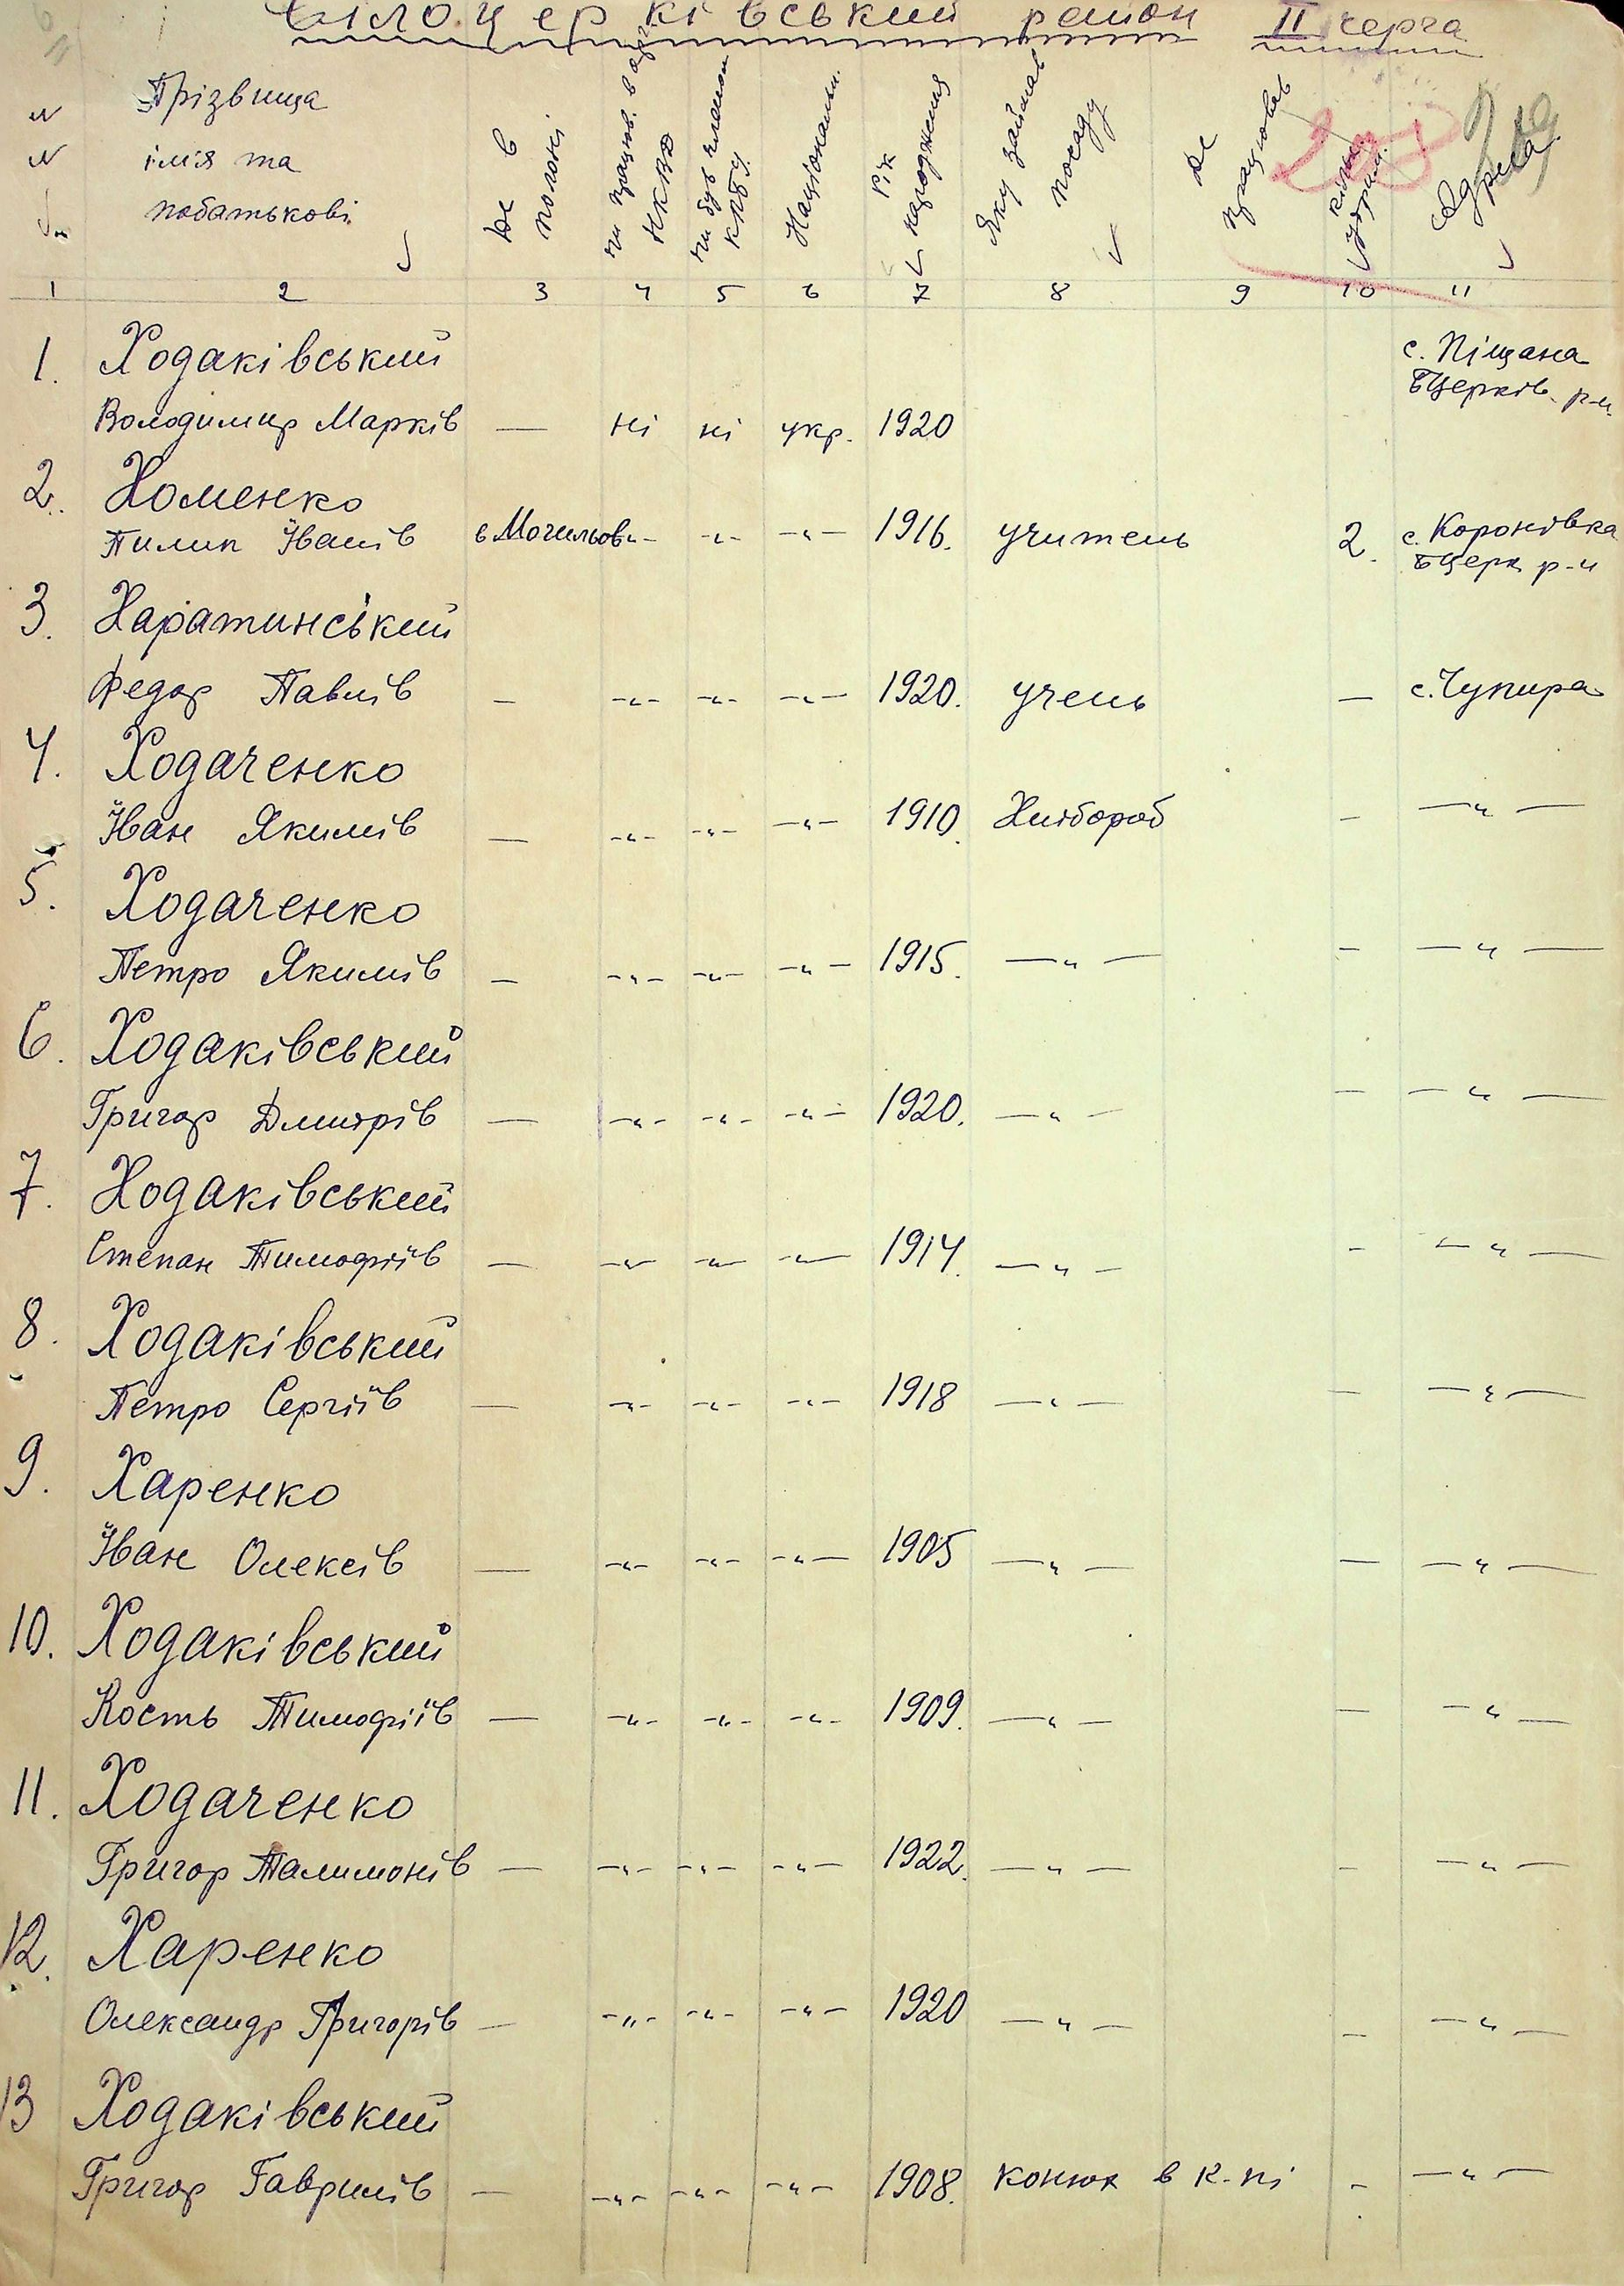 Білоцерківський район II черга
№ № п.п. Прізвища імя та побатькові Де в полоні чи працюв. в орг. НКВД чи був членом КПбУ Національн. Рік народження Яку займав посаду Де працював Адреса
1 2 3 4 5 6 7 8 9 10 11
1. Ходаківський с. Піщана
БЦерків. р-н.
Володимир Марків — ні ні укр. 1920
2. Хоменко
Пилип Іванів в Могильов -"- -"- -"- 1916. учитель 2. с. Коронівка
БЦерк р-н
3. Харатинський
Федор Павлів — -"- -"- -"- 1920. учень — с. Чупира
4. Ходаченко
Іван Якимів — -"- -"- -"- 1910. Хлібороб - —"—
5. Ходаченко
Петро Якимів — -"- -"- -"- 1915. —"— - —"—
6. Ходаківський
Григор Дмитрів — -"- -"- -"- 1920. —"— - —"—
7. Ходаківський
Степан Тимофіїв — -"- -"- -"- 1914. —"— - —"—
8. Ходаківський
Петро Сергіїв — -"- -"- -"- 1918 —"— - —"—
9. Харенко
Іван Олексів — -"- -"- -"- 1905 —"— — —"—
10. Ходаківський
Кость Тимофіїв — -"- -"- -"- 1909. —"— — —"—
11. Ходаченко
Григор Талимонів — -"- -"- -"- 1922. —"— - —"—
12. Харенко
Олександр Григорів — -"- -"- -"- 1920 —"— - —"—
13 Ходаківський
Григор Гаврилів — -"- -"- -"- 1908. конюх в к-пі - —"—